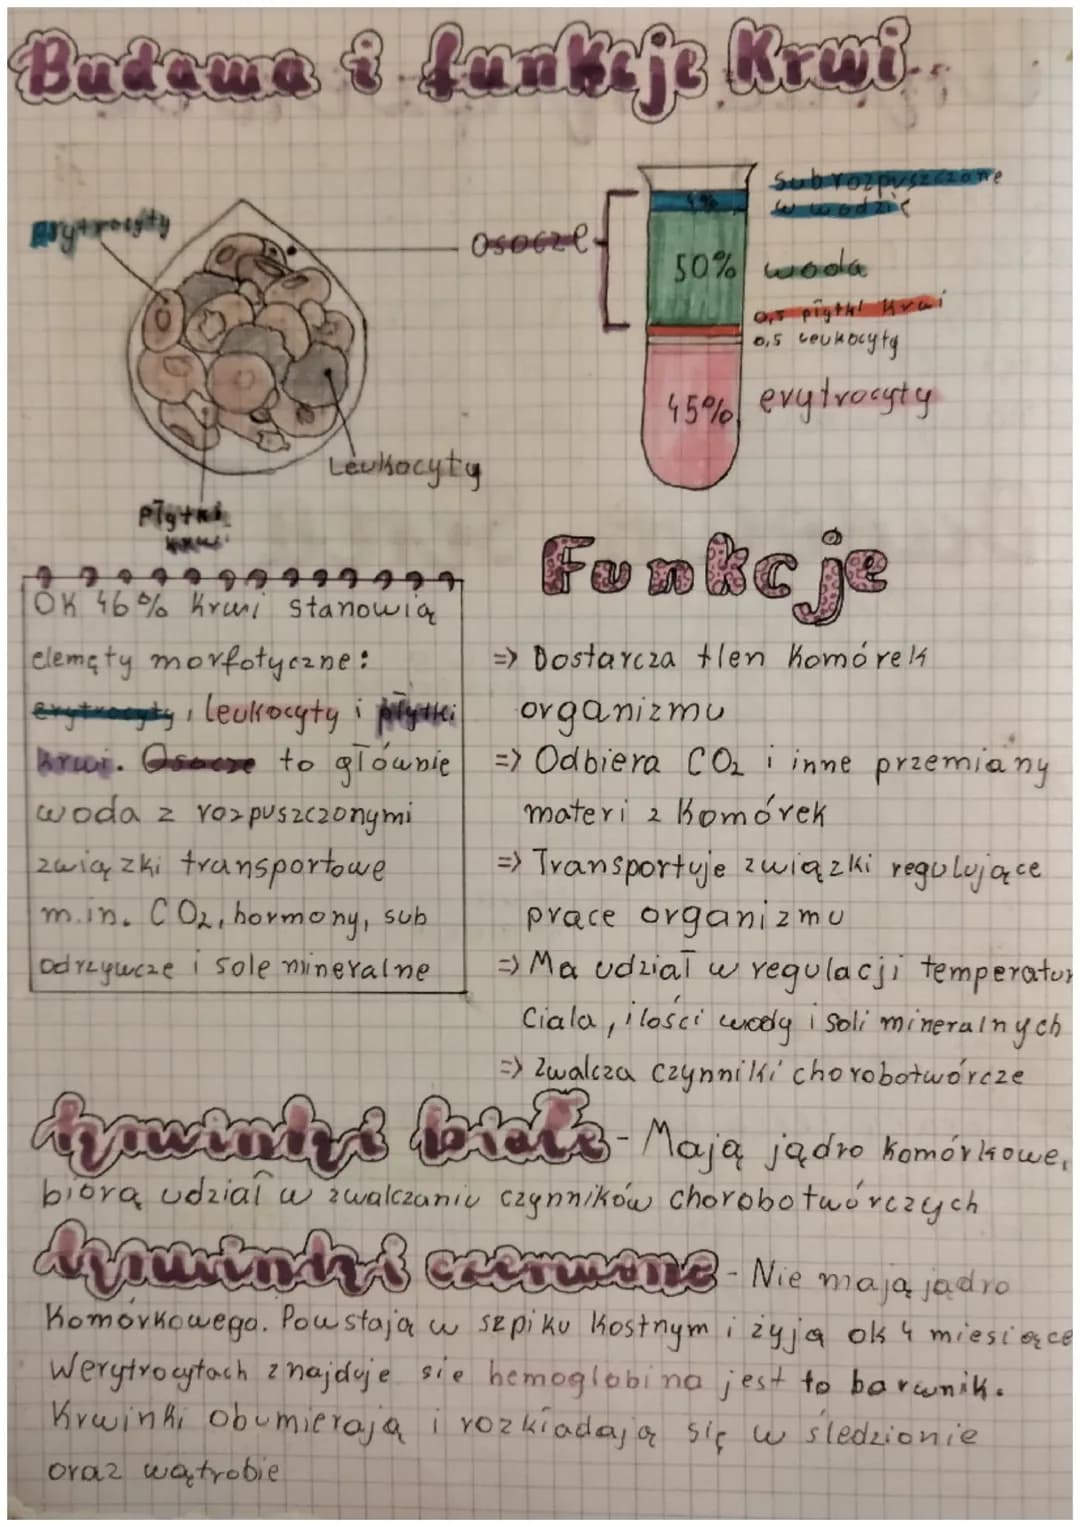 Budowa i funkcje Krwi
Erytrocyty
osocze
4%
sub rozpuszczone
w wodzie
50%
woda
0,5 płytki krwi
0,5 Leukocyty
45%
erytrocyty
Leukocyty
Płytki
krwi
OK 46% Krwi stanowią
elemęty morfotyczne:
erytrocyty, Leukocyty i płytki
krwi. Osocze to głównie
woda z rozpuszczonymi
związki transportowe
m.in. CO2, hormony, sub
odrzywcze i sole mineralne
Funkcje
=> Dostarcza tlen komórek
organizmu
=> Odbiera CO2 i inne przemiany
materi z komórek
=> Transportuje związki regulujące
prace organizmu
=> Ma udział w regulacji temperatur
Ciala, ilości wody i soli mineralnych
=> Zwalcza czynniki chorobotwórcze
krwinki białe - Mają jądro komórkowe,
biorą udział w zwalczaniu czynników chorobotwórczych
krwinki czerwone - Nie mają jądro
Komórkowego. Powstają w szpiku kostnym i żyją ok 4 miesiące
Werytrocytach znajduje sie hemoglobina jest to barwnik.
Krwinki obumierają i rozkładają się w śledzionie
oraz wątrobie